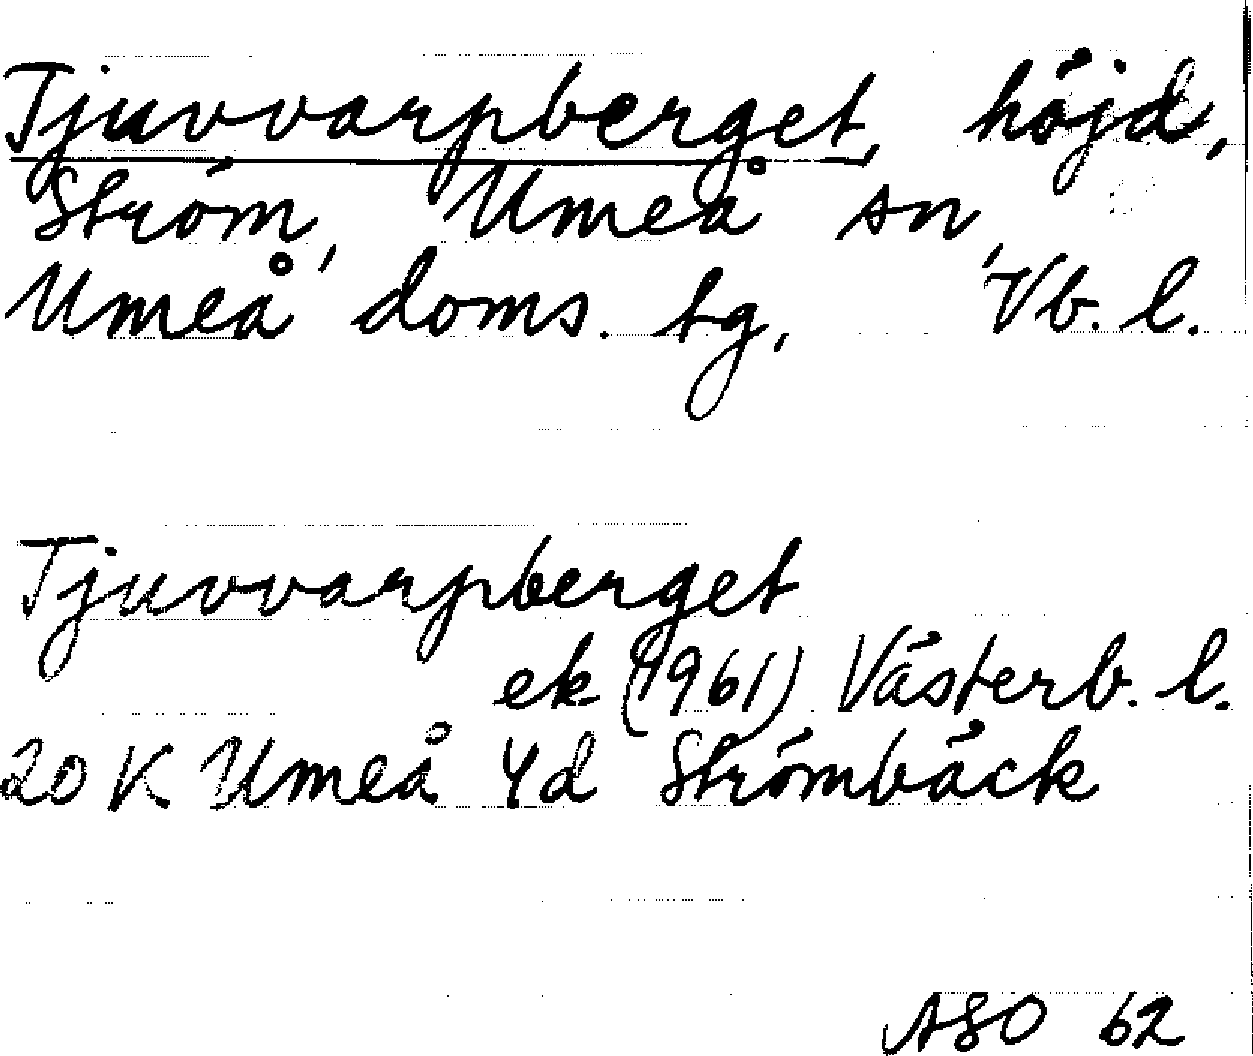 Tjuvvarpberget, höjd,
Ström, Umeå sn,
Umeå doms. tg, Vb. l.
Tjuvvarpberget
ek (1961) Västerb. l.
20 K Umeå 4d Strömbäck
ASO 62